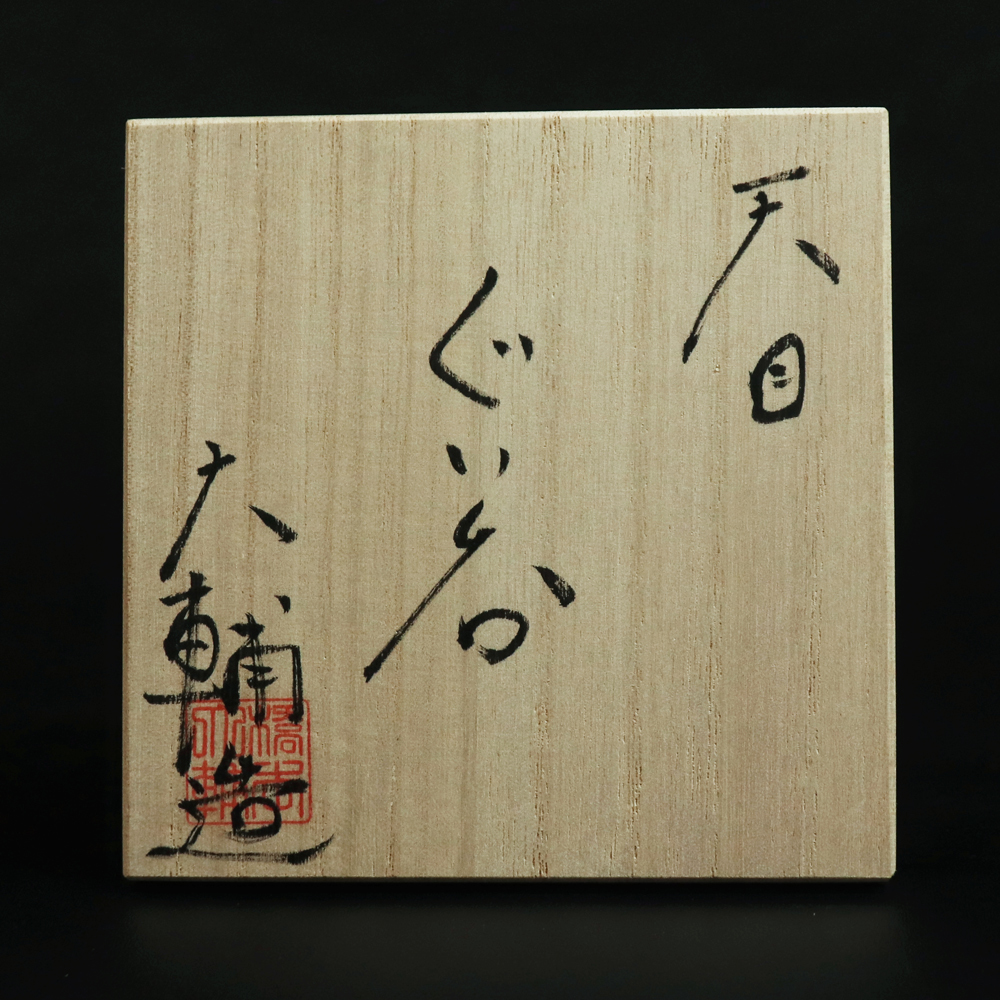 天目
ぐい呑
大輔造